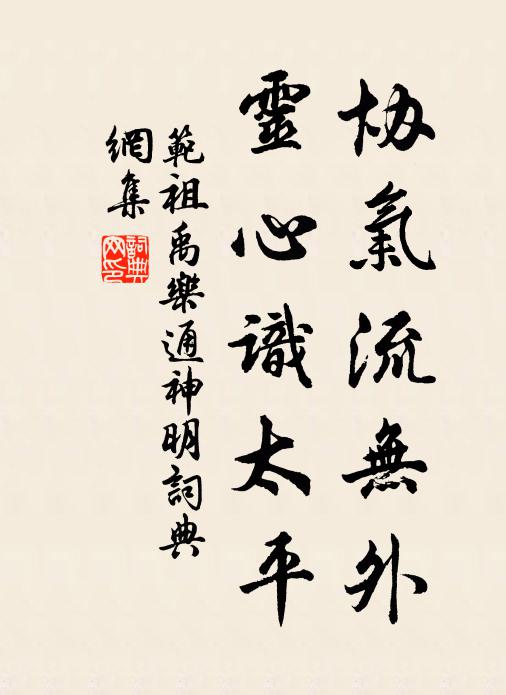 协氣流無外
靈心識太平
範祖禹樂通神明詞典
網集
詞典
网印